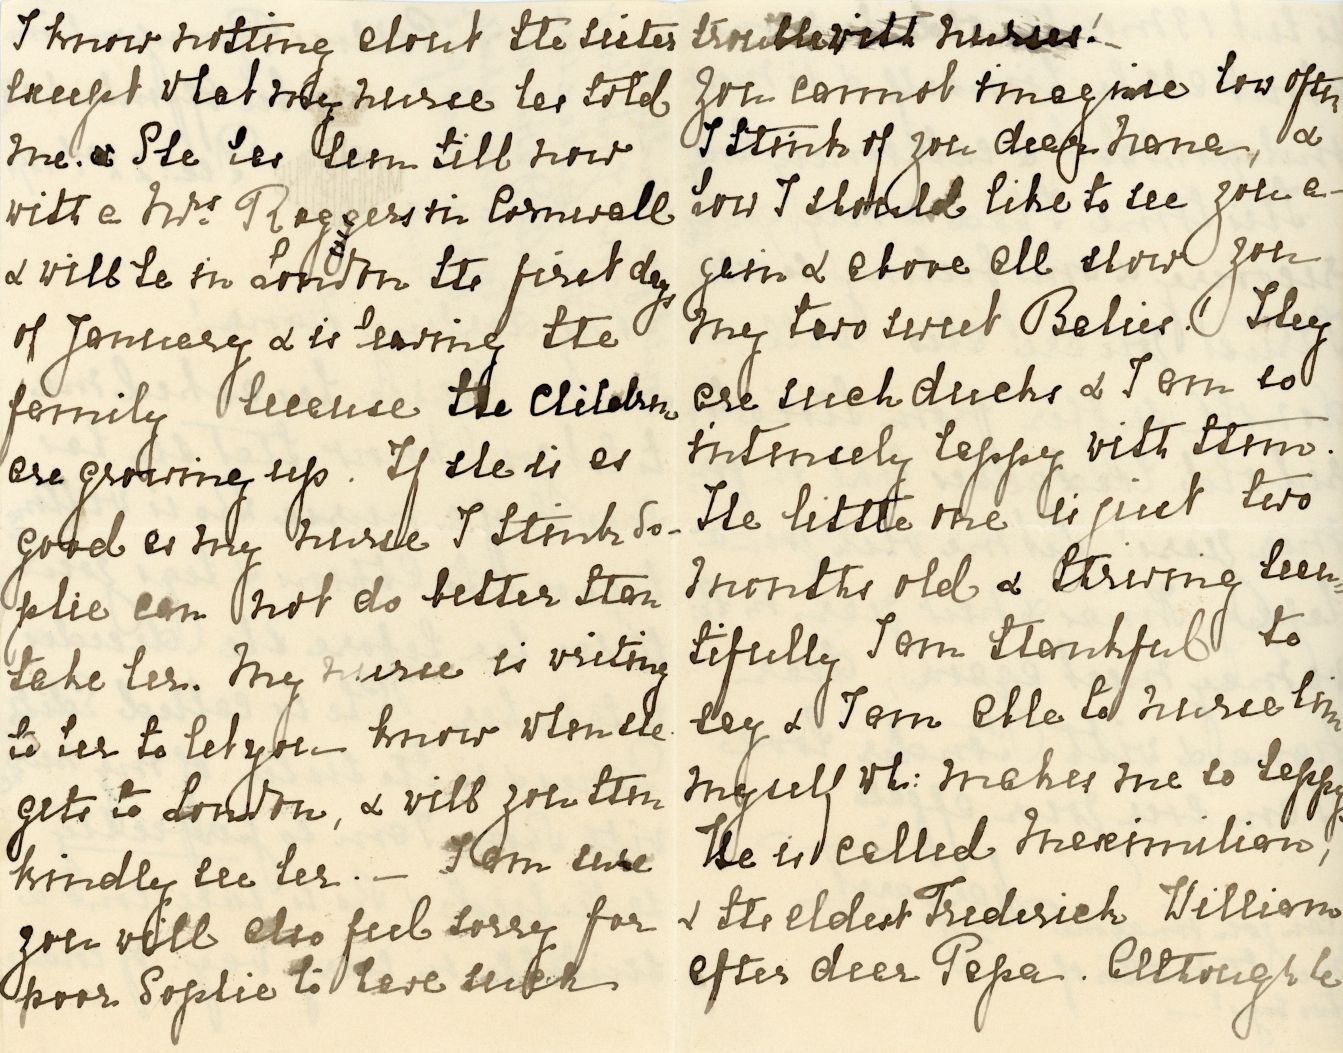 I know nothing about the sister
except what my nurse has told
me. & She has been till now
with a Mrs. Roggers in Cornwall
& will be in London the first days
of January & is leaving the
family because the children
are growing up. If she is as
good as my nurse I think So-
phie can not do better than
take her. My nurse is writing
to her to let you know when she
gets to London, & will you then
kindly see her. — I am sure
you will also feel sorry for
poor Sophie to have such
trouble with nurses! —
You cannot imagine how often
I think of you dear Nana, &
how I should like to see you a-
gain & above all show you
my two sweet Babies! They
are such ducks & I am so
intensely happy with them.
The little one is just two
months old & thriving beau-
tifully I am thankful to
say & I am able to nurse him
myself wh: makes me so happy.
He is called Maximilian,
& the eldest Frederick William
after dear Papa. Although he